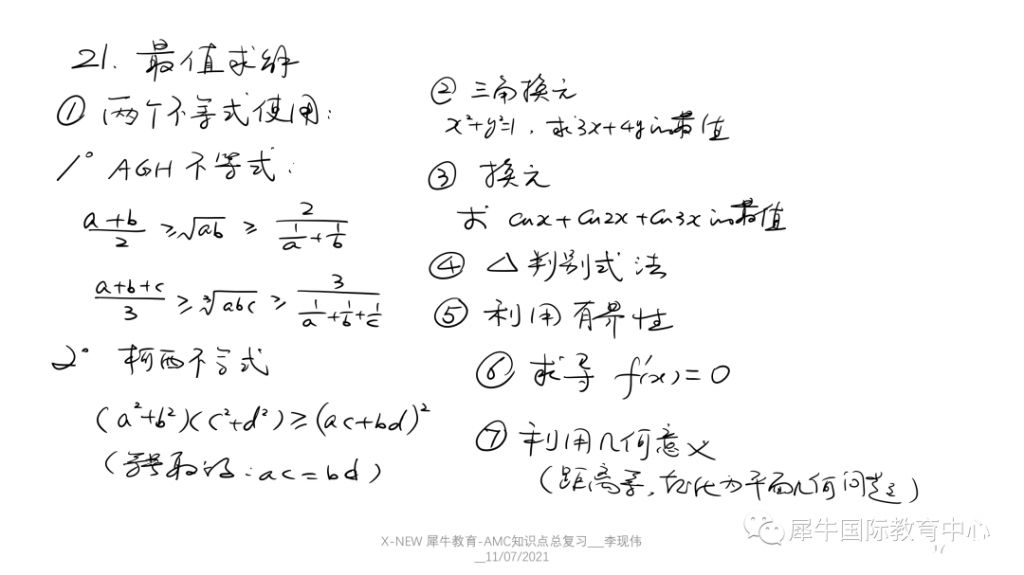 21. 最值求解
① 两个不等式使用:
1° AGH 不等式:
(a+b)/2 ≥ √ab ≥ 2/(1/a + 1/b)
(a+b+c)/3 ≥ ³√abc ≥ 3/(1/a + 1/b + 1/c)
2° 柯西不等式
(a²+b²)(c²+d²) ≥ (ac+bd)²
(等号取得: ac = bd)
② 三角换元
x²+y²=1, 求3x+4y的最值
③ 换元
求 cosx + cos2x + cos3x的最值
④ △判别式法
⑤ 利用有界性
⑥ 求导 f'(x) = 0
⑦ 利用几何意义
(距离等, 转化为平面几何问题)
犀牛国际教育中心
X-NEW 犀牛教育-AMC知识点总复习__李现伟
__11/07/2021
17